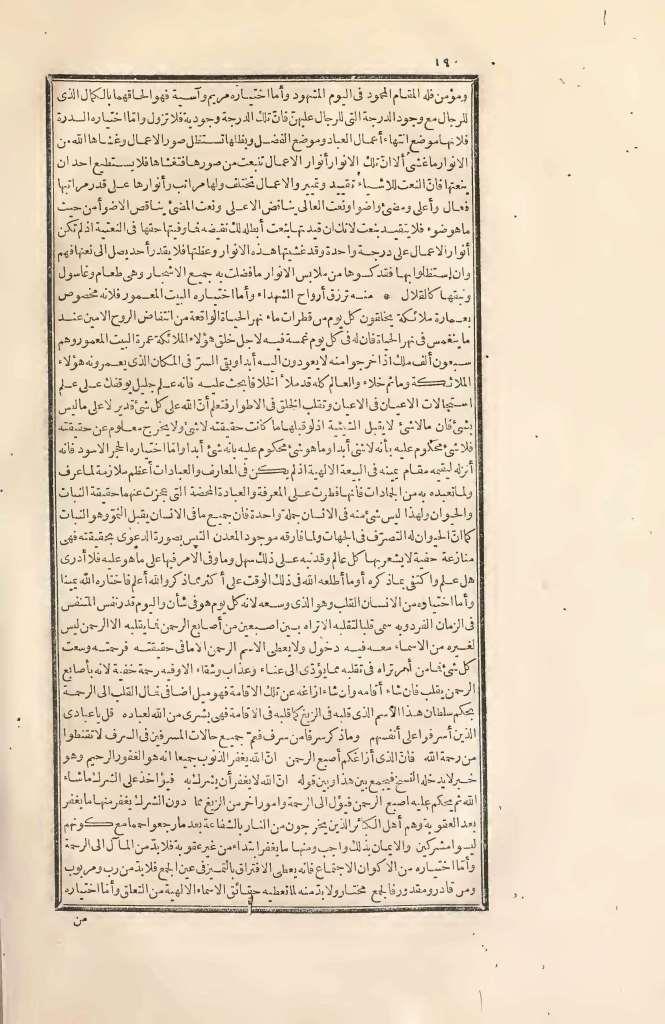 ١٩٠
ومؤمن فله المقام المحمود فى اليوم المشهود وأما اختياره مريم وآسية فهو الحاقهما بالكمال الذى
للرجال مع وجود الدرجة التى للرجال عليهن فان تلك الدرجة وجودية فلا تزول واما اختياره السدرة
فلانها موضع انتهاء أعمال العباد وموضع الفصل وبظلها تستظل صور الاعمال وغشاها الله من
الانوار ما غشى ألا ان تلك الانوار أنوار الاعمال تنبعث من صورها فتغشاها فلا يستطيع احد ان
ينعتها فان النعت للاشياء تقييد وتمييز والاعمال تختلف ولها مراتب وأنوارها على قدر مراتبها
فعال وأعلى ومضىء واضوا ونعت العالى يناقض الاعلى ونعت المضىء يناقض الاضوأ من حيث
ما هو ضوء فلا يتقيد بنعت لانك ان قيدتها بنعت أبطله لك نقيضه فما وفيتها حقها فى النعتية اذ لم تكن
أنوار الاعمال على درجة واحدة وقد غشيتها هذه الانوار وعظتها فلا يقدر أحد يصل الى نعتها فهم
وان استظلوا بها فقد كسوها من ملابس الانوار ما فضلت به جميع الاشجار وهى طعام وغاسول
ونبقها كالقلال * منه ترزق أرواح الشهداء وأما اختياره البيت المعمور فلانه مخصوص
بعمارة ملائكة يخلقون كل يوم من قطرات ماء نهر الحياة الواقعة من انتفاض الروح الامين عند
ما ينغمس فى نهر الحياة فان له فى كل يوم غمسة فيه لاجل خلق هؤلاء الملائكة عمرة البيت المعمور وهم
سبعون ألف ملك اذا خرجوا منه لا يعودون اليه أبدا وبقى السر فى المكان الذى يعمرونه هؤلاء
الملائكة وما ثم خلاء والعالم كله قد ملأ الخلا فابحث عليه فانه علم جليل يوقفك على علم
استحالات الاعيان فى الاعيان وتقلب الخلق فى الاطوار فتعلم أن الله على كل شئ قدير لا على ما ليس
بشئ فان مالا شئ لا يقبل الشيئية اذ لو قبلها ما كانت حقيقته لا شئ ولا يخرج معلوم عن حقيقته
فلا شئ محكوم عليه بأنه لا شئ أبدا وما هو شئ محكوم عليه بأنه شئ أبدا واما اختياره الحجر الاسود فانه
أنزله ليقيمه مقام يمينه فى البيعة الالهية اذ لم يكن فى المعارف والعبادات أعظم ملازمة لما عرف
ولما تعبده به من الجمادات فانها فطرت على المعرفة والعبادة المحضة التى عجزت عنها حقيقة النبات
والحيوان ولهذا ليس شئ منه فى الانسان جملة واحدة فان جميع ما فى الانسان يقبل النمو وهو النبات
كما ان الحيوان له التصرف فى الجهات ولما فارقه موجود المعدن التبس بصورة الدعوى بحقيقته فهى
منازعة خفية لا يشعر بها كل عالم وقد نبه على ذلك سهل وما وفى الامر فيها على ما هو عليه فلا أدرى
هل علم واكتفى بما ذكره أو ما أطلعه الله فى ذلك الوقت على أكثر مما ذكر والله أعلم فاختاره الله يمينا
وأما اختياره من الانسان القلب وهو الذى وسعه لانه كل يوم هو فى شأن واليوم قدر نفس المتنفس
فى الزمان الفرد وبه سمى قلبا لتقلبه الا تراه بين اصبعين من أصابع الرحمن فما يقلبه الا الرحمن ليس
لغيره من الاسماء معه فيه دخول ولا يعطى الاسم الرحمن الا ما فى حقيقته فرحمته وسعت
كل شئ فما من أمر تراه فى تقلبه مما يؤدى الى عناء وعذاب وشقاء الا وفيه رحمة خفية لانه بأصابع
الرحمن يقلب فان شاء أقامه وان شاء ازاغه عن تلك الاقامة فهو ميل اضافى فمال القلب الى الرحمة
بحكم سلطان هذا الاسم الذى قلبه فى الزيغ كما قلبه فى الاقامة فهى بشرى من الله لعباده قل يا عبادى
الذين أسرفوا على أنفسهم وما ذكر سرفا من سرف فعم جميع حالات المسرفين فى السرف لا تقنطوا
من رحمة الله فان الذى أزاغكم أصبع الرحمن ان الله يغفر الذنوب جميعا انه هو الغفور الرحيم وهو
خبر لا يدخله النسخ فيجمع بين هذا وبين قوله ان الله لا يغفر أن يشرك به فيؤاخذ على الشرك ما شاء
الله ثم يحكم عليه اصبع الرحمن فيؤل الى الرحمة وامور اخر من الزيغ مما دون الشرك يغفر منها ما يغفر
بعد العقوبة وهم أهل الكبائر الذين يخرجون من النار بالشفاعة بعد ما رجعوا حمما مع كونهم
ليسوا مشركين والايمان بذلك واجب ومنها ما يغفر ابتداء من غير عقوبة فلا بد من المآل الى الرحمة
وأما اختياره من الاكوان الاجتماع فانه يعطى الافتراق بالتمييز فى عين الجمع فلا بد من رب ومربوب
ومن قادر ومقدور فالجمع مختار ولا بد منه لما تعطيه حقائق الاسماء الالهية من التعلق وأما اختياره
من